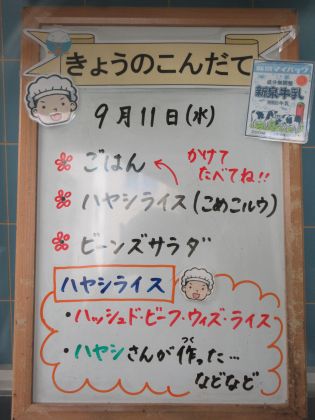 きょうのこんだて
新泉牛乳
9月11日(水)
ごはん
かけて
たべてね!!
ハヤシライス(こめこルウ)
ビーンズサラダ
ハヤシライス
・ハッシュド・ビーフ・ウィズ・ライス
・ハヤシさんが作った…
つく
などなど